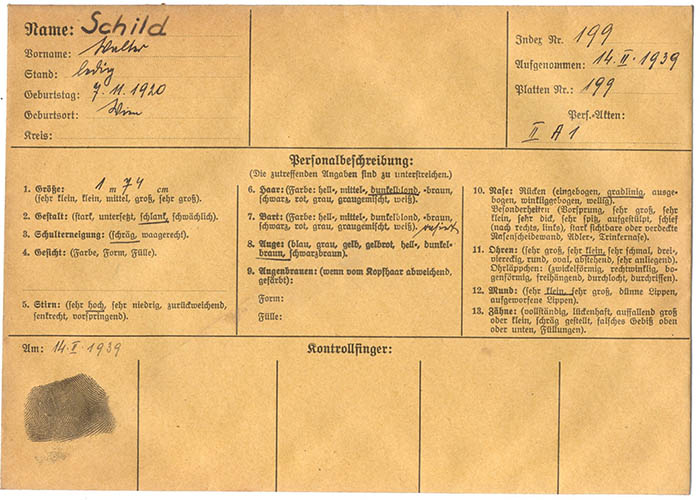 Name: Schild
Vorname: Walter
Stand: ledig
Geburtstag: 7. 11. 1920
Geburtsort: Wien
Kreis:
Index Nr. 199
Aufgenommen: 14. II. 1939
Platten Nr.: 199
Pers.-Akten:
II A 1
Personalbeschreibung:
(Die zutreffenden Angaben sind zu unterstreichen.)
1. Größe: 1 m 74 cm
(sehr klein, klein, mittel, groß, sehr groß).
2. Gestalt: (stark, untersetzt, schlank, schwächlich).
3. Schulterneigung: (schräg, waagerecht).
4. Gesicht: (Farbe, Form, Fülle).
5. Stirn: (sehr hoch, sehr niedrig, zurückweichend,
senkrecht, vorspringend).
6. Haar: (Farbe: hell-, mittel-, dunkelblond, -braun,
schwarz, rot, grau, graugemischt, weiß).
7. Bart: (Farbe: hell-, mittel-, dunkelblond, -braun,
schwarz, rot, grau, graugemischt, weiß). rasiert
8. Auge: (blau, grau, gelb, gelbrot, hell-, dunkel-
braun, schwarzbraun).
9. Augenbrauen: (wenn vom Kopfhaar abweichend,
gefärbt):
Form:
Fülle:
10. Nase: Rücken (eingebogen, gradlinig, ausge-
bogen, winkliggebogen, wellig).
Besonderheiten (Vorsprung, sehr groß, sehr
klein, sehr dick, sehr spitz, aufgestülpt, schief
(nach rechts, links), stark sichtbare oder verdeckte
Nasenscheidewand, Adler-, Trinkernase).
11. Ohren: (sehr groß, sehr klein, sehr schmal, drei-
viereckig, rund, oval, abstehend, sehr anliegend).
Ohrläppchen: (zwickelförmig, rechtwinklig, bo-
genförmig, freihängend, durchlocht, durchrissen).
12. Mund: (sehr klein, sehr groß, dünne Lippen,
aufgeworfene Lippen).
13. Zähne: (vollständig, lückenhaft, auffallend groß
oder klein, schräg gestellt, falsches Gebiß oben
oder unten, Füllungen).
Am: 14. II. 1939
Kontrollfinger: